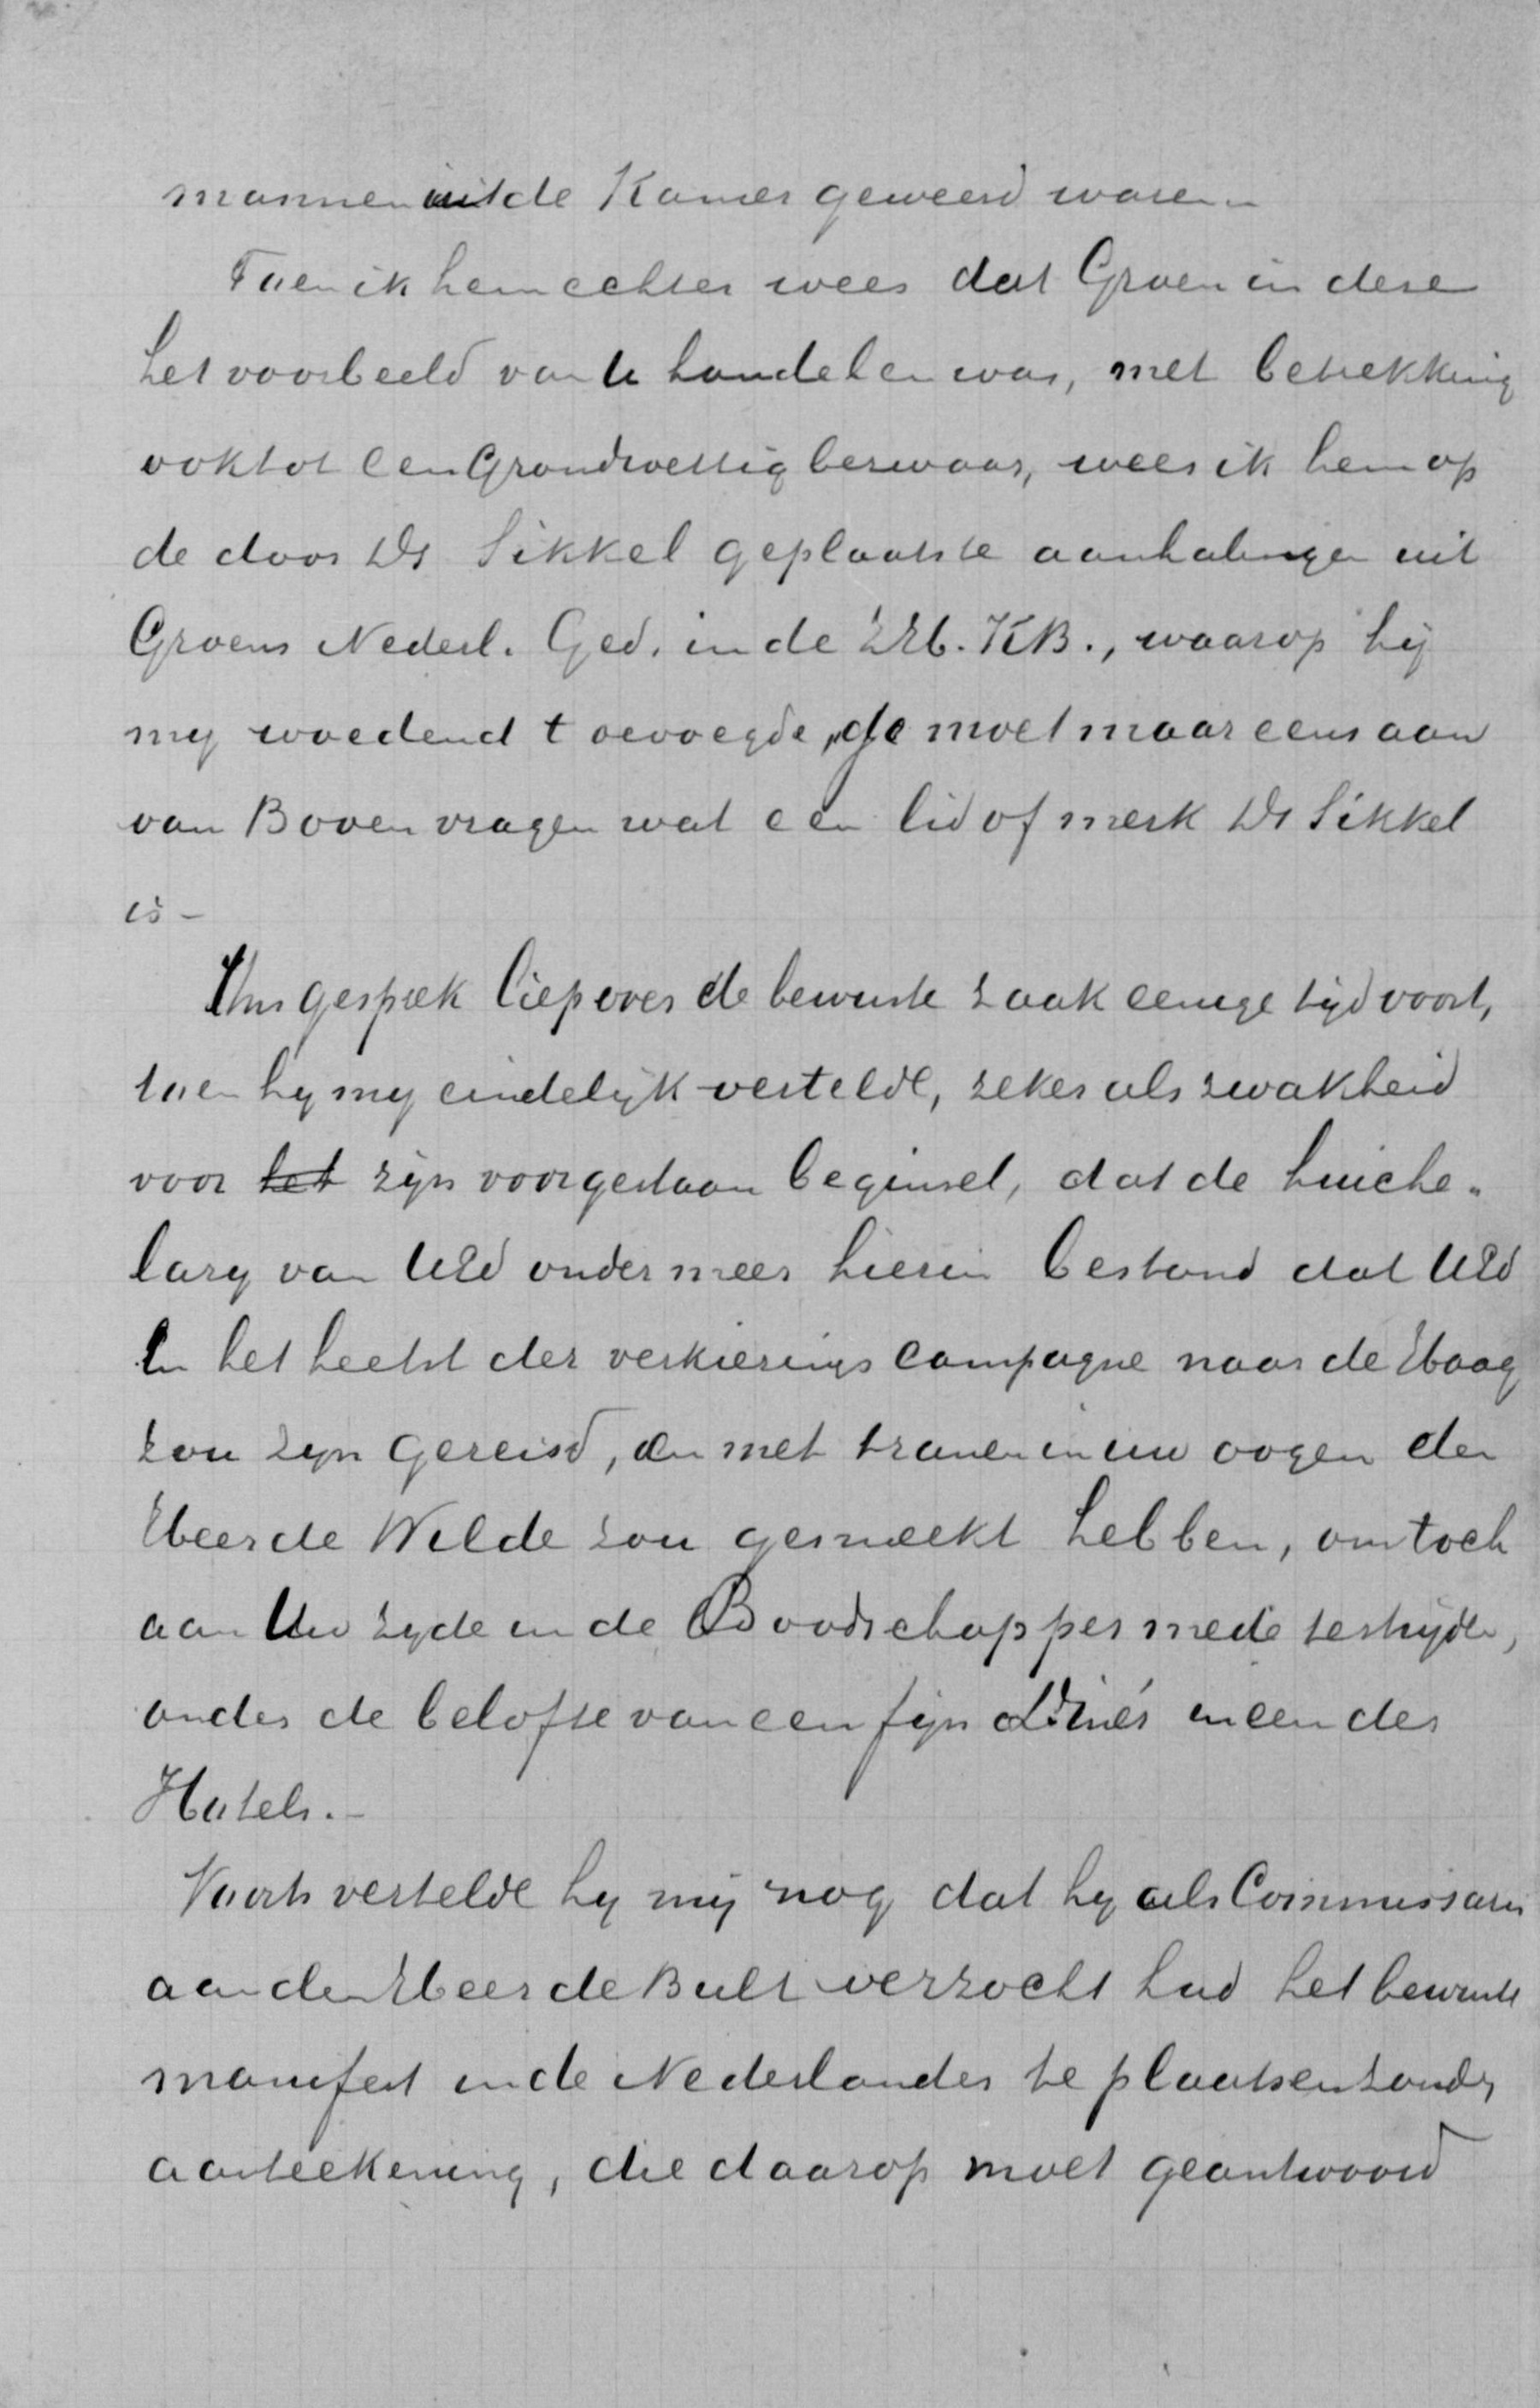 mannen uit de Kamer geweerd waren
Toen ik hem echter wees dat Groen in deze
het voorbeeld van te handelen was, met betrekking
ook tot een Grondwettig bezwaar, wees ik hem op
de door Ds Sikkel geplaatste aanhalingen uit
Groens Nederl. Ged. in de H. KB., waarop hij
my woedend toevoegde „Je moet maar eens aan
van Boven vragen wat een lid of merk Ds Sikkel
is –
Ons gesprek liep over de bewuste zaak eenige tijd voort,
toen hy my eindelyk vertelde, zeker als zwakheid
voor het zijn voorgestaan beginsel, dat de huiche-
lary van UEd onder meer hierin bestond dat UEd
In het heetst der verkiezings campagne naar de Haag
zou zyn gereisd, en met tranen in uw oogen den
Heer de Wilde zou gesmeekt hebben, om toch
aan Uw zyde in de Boodschapper mede te strijden,
onder de belofte van een fijn diner in een der
Hotels. –
Voorts vertelde hy mij nog dat hy als Commissaris
aan den Heer de Bult verzocht had het bewuste
manifest in de Nederlander te plaatsen zonder
aanteekening, die daarop moet geantwoord